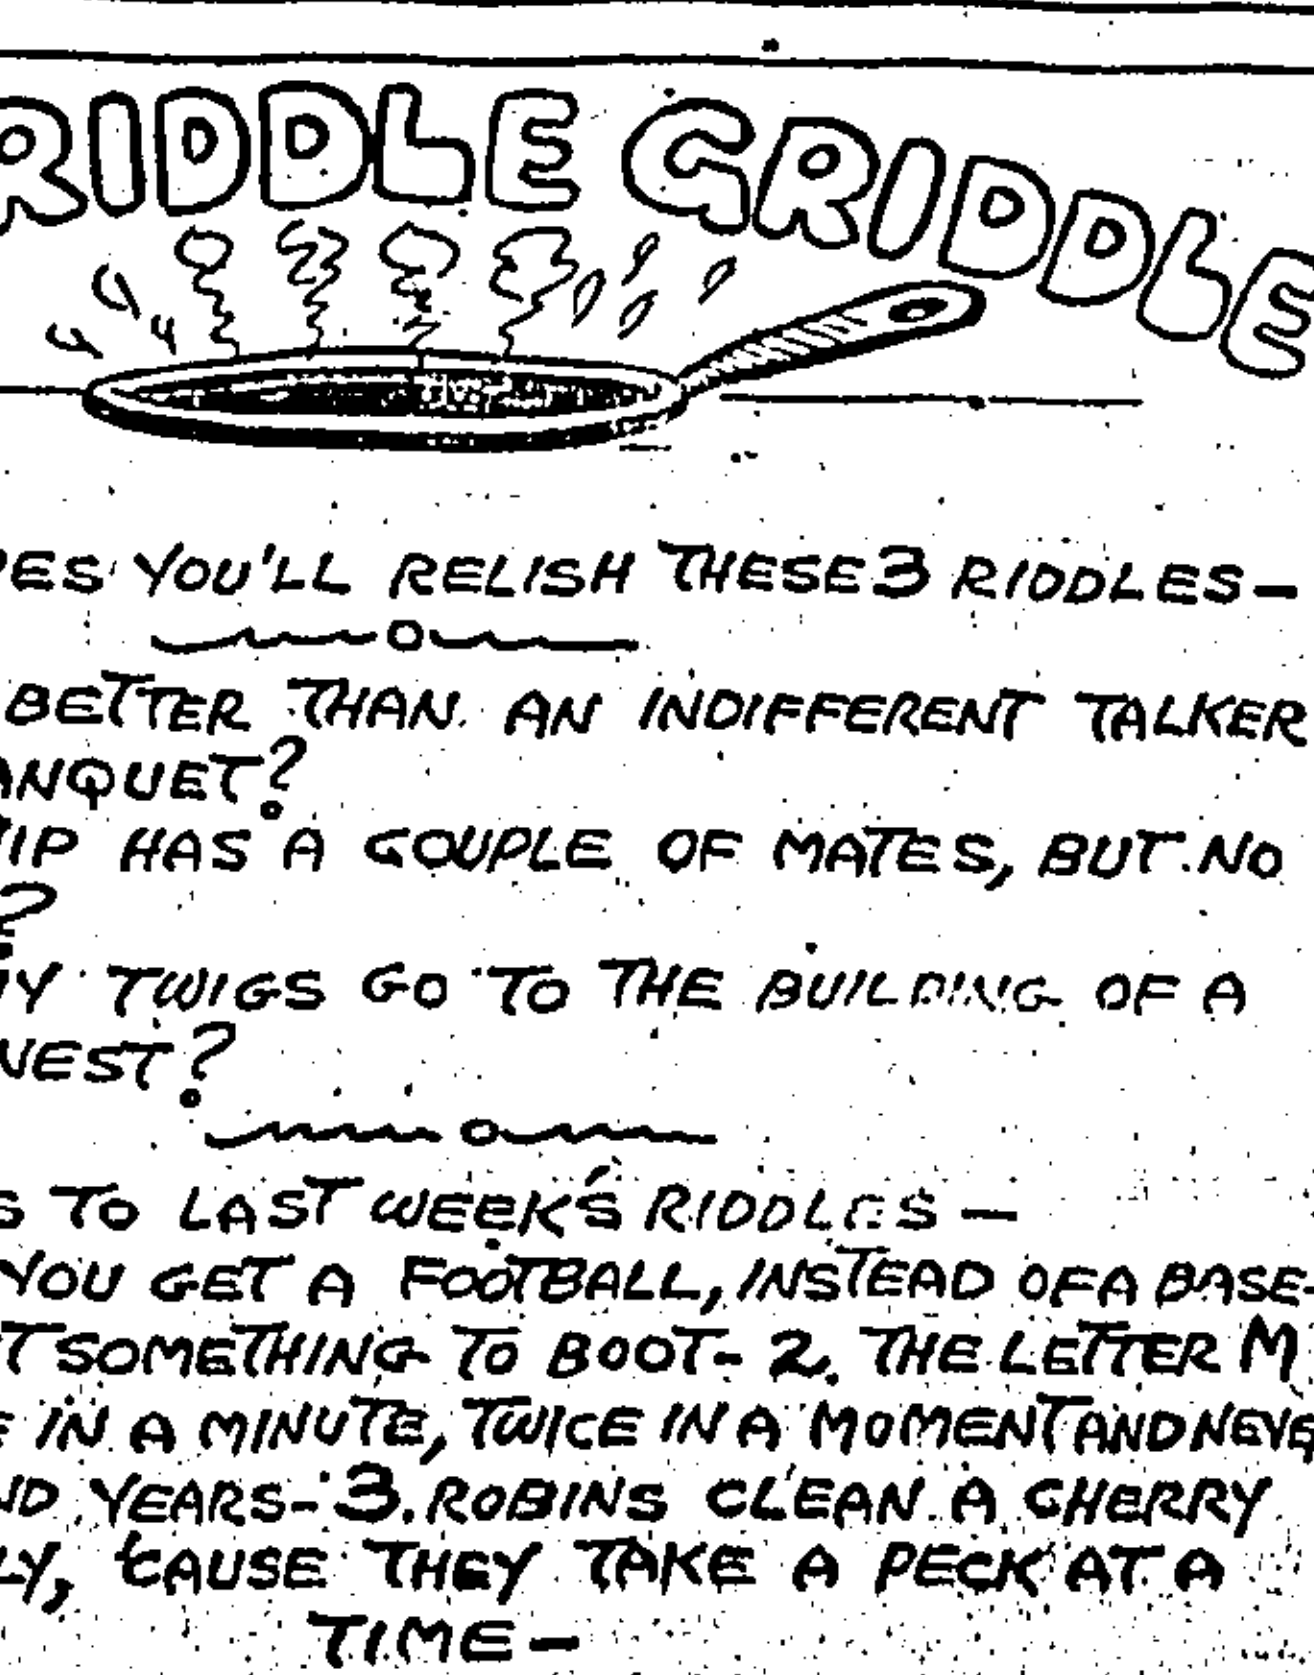 RIDDLE GRIDDLE
YOU'LL RELISH THESE 3 RIDDLES—
BETTER THAN AN INDIFFERENT TALKER
ANQUET?
HAS A COUPLE OF MATES, BUT NO
?
TWIGS GO TO THE BUILDING OF A
NEST?
S TO LAST WEEK'S RIDDLES—
YOU GET A FOOTBALL, INSTEAD OF A BASE-
SOMETHING TO BOOT- 2. THE LETTER M
IN A MINUTE, TWICE IN A MOMENT AND NEVE
ND YEARS- 3. ROBINS CLEAN A CHERRY
LY, 'CAUSE THEY TAKE A PECK AT A
TIME—